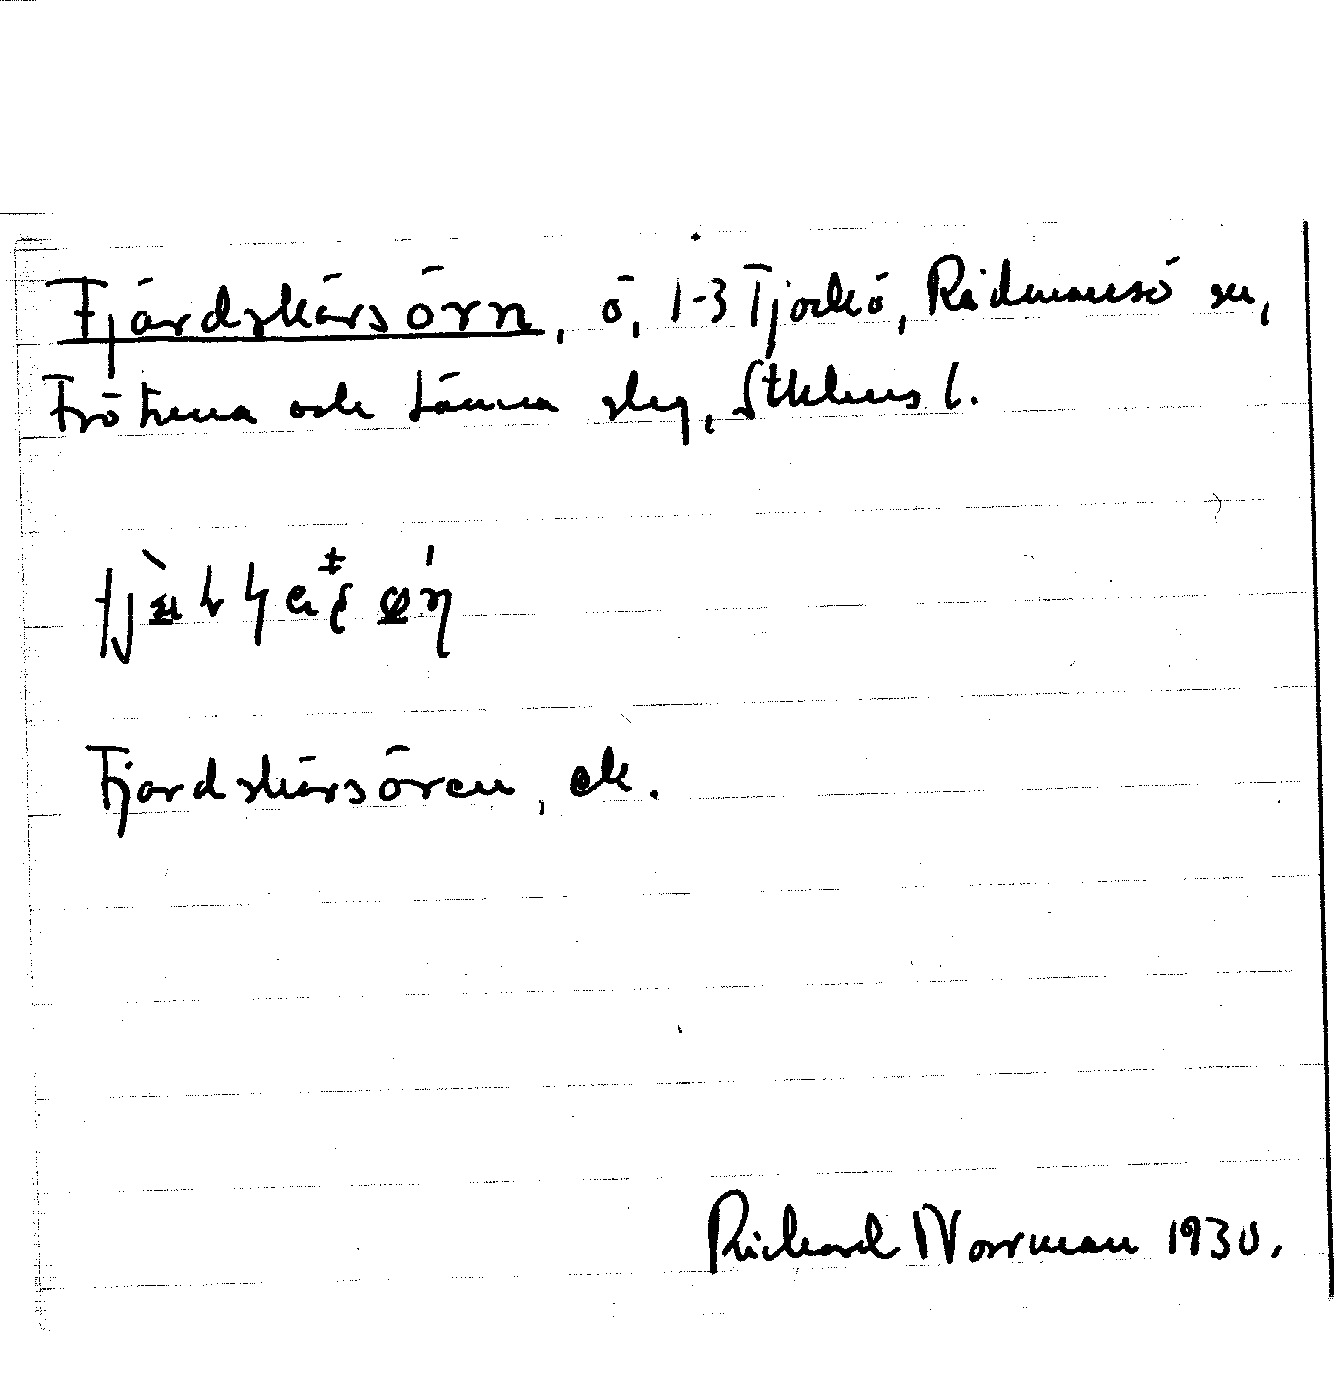 Fjärdskärsörn, ö, 1-3 Tjockö, Rådmansö sn,
Frötuna och Länna slg, Sthlms l.
Fjärdskärsören, ek.
Richard Norrman 1930.